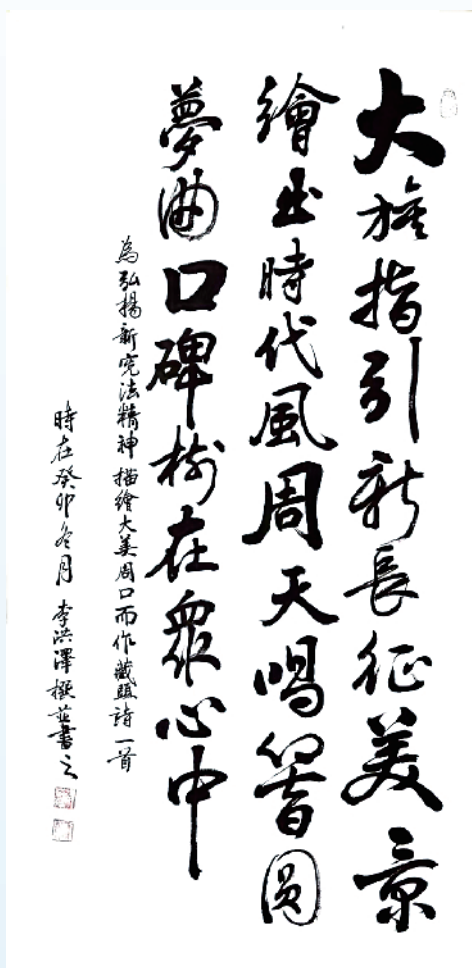 大旗指引新長征美景
繪出時代風周天唱響圓
夢曲口碑樹在眾心中
為弘揚新宪法精神 描繪大美周口而作藏頭詩一首
時在癸卯冬月 李洪澤撰並書之